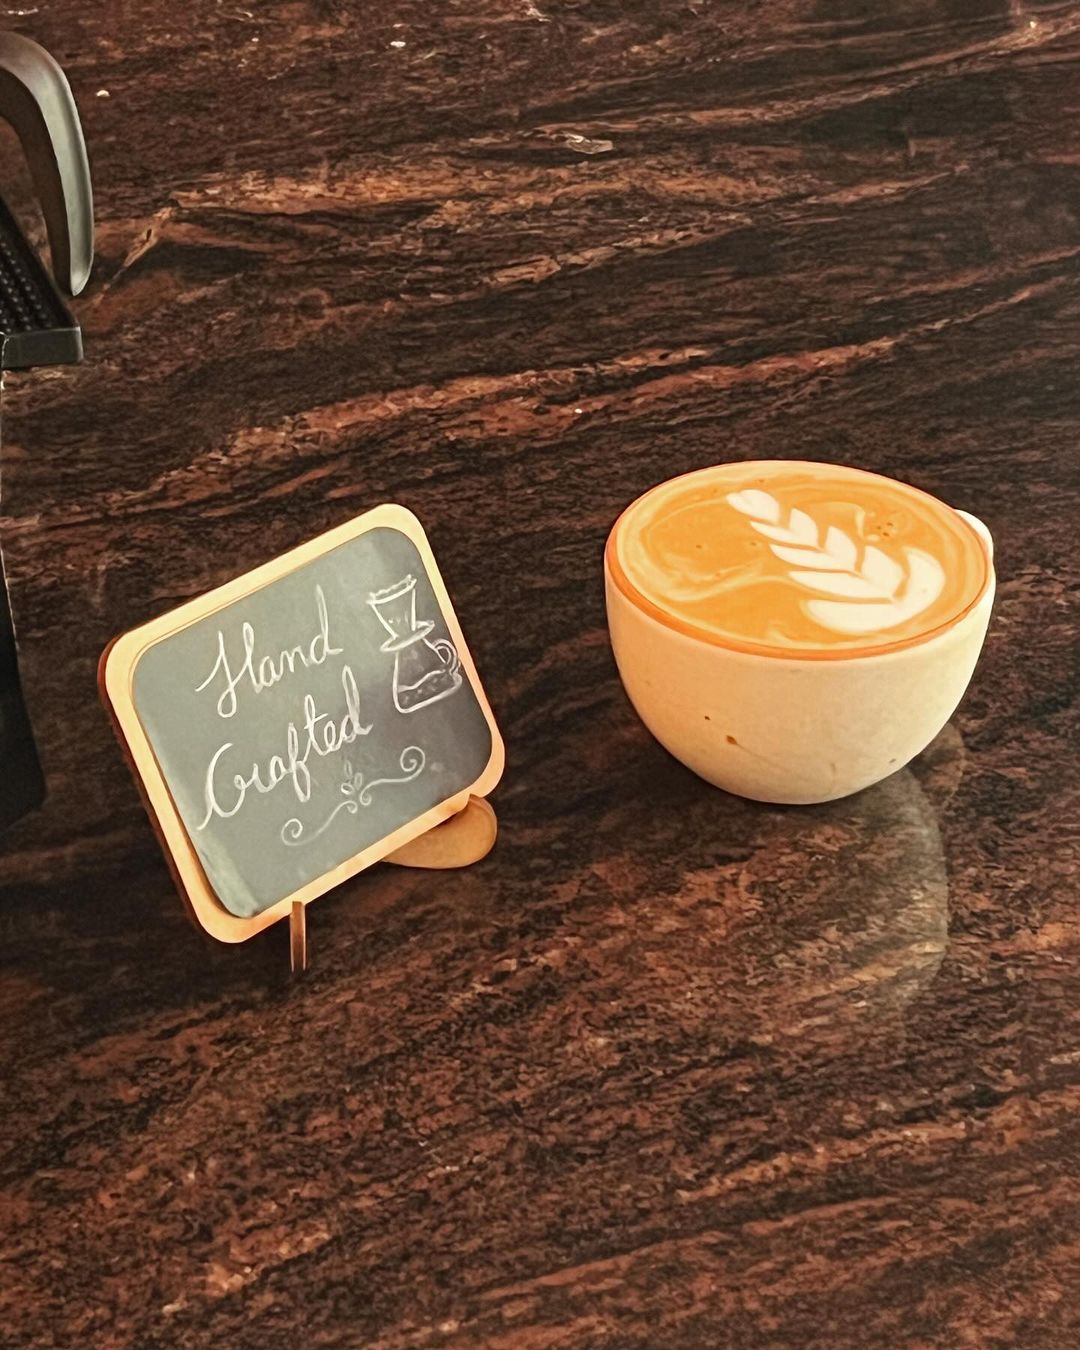 Hand
Crafted